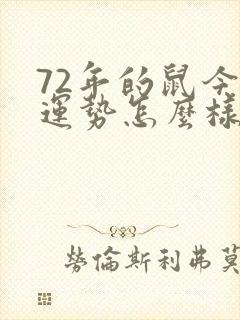 72年的鼠今
運勢怎麼樣
勞倫斯利弗莫